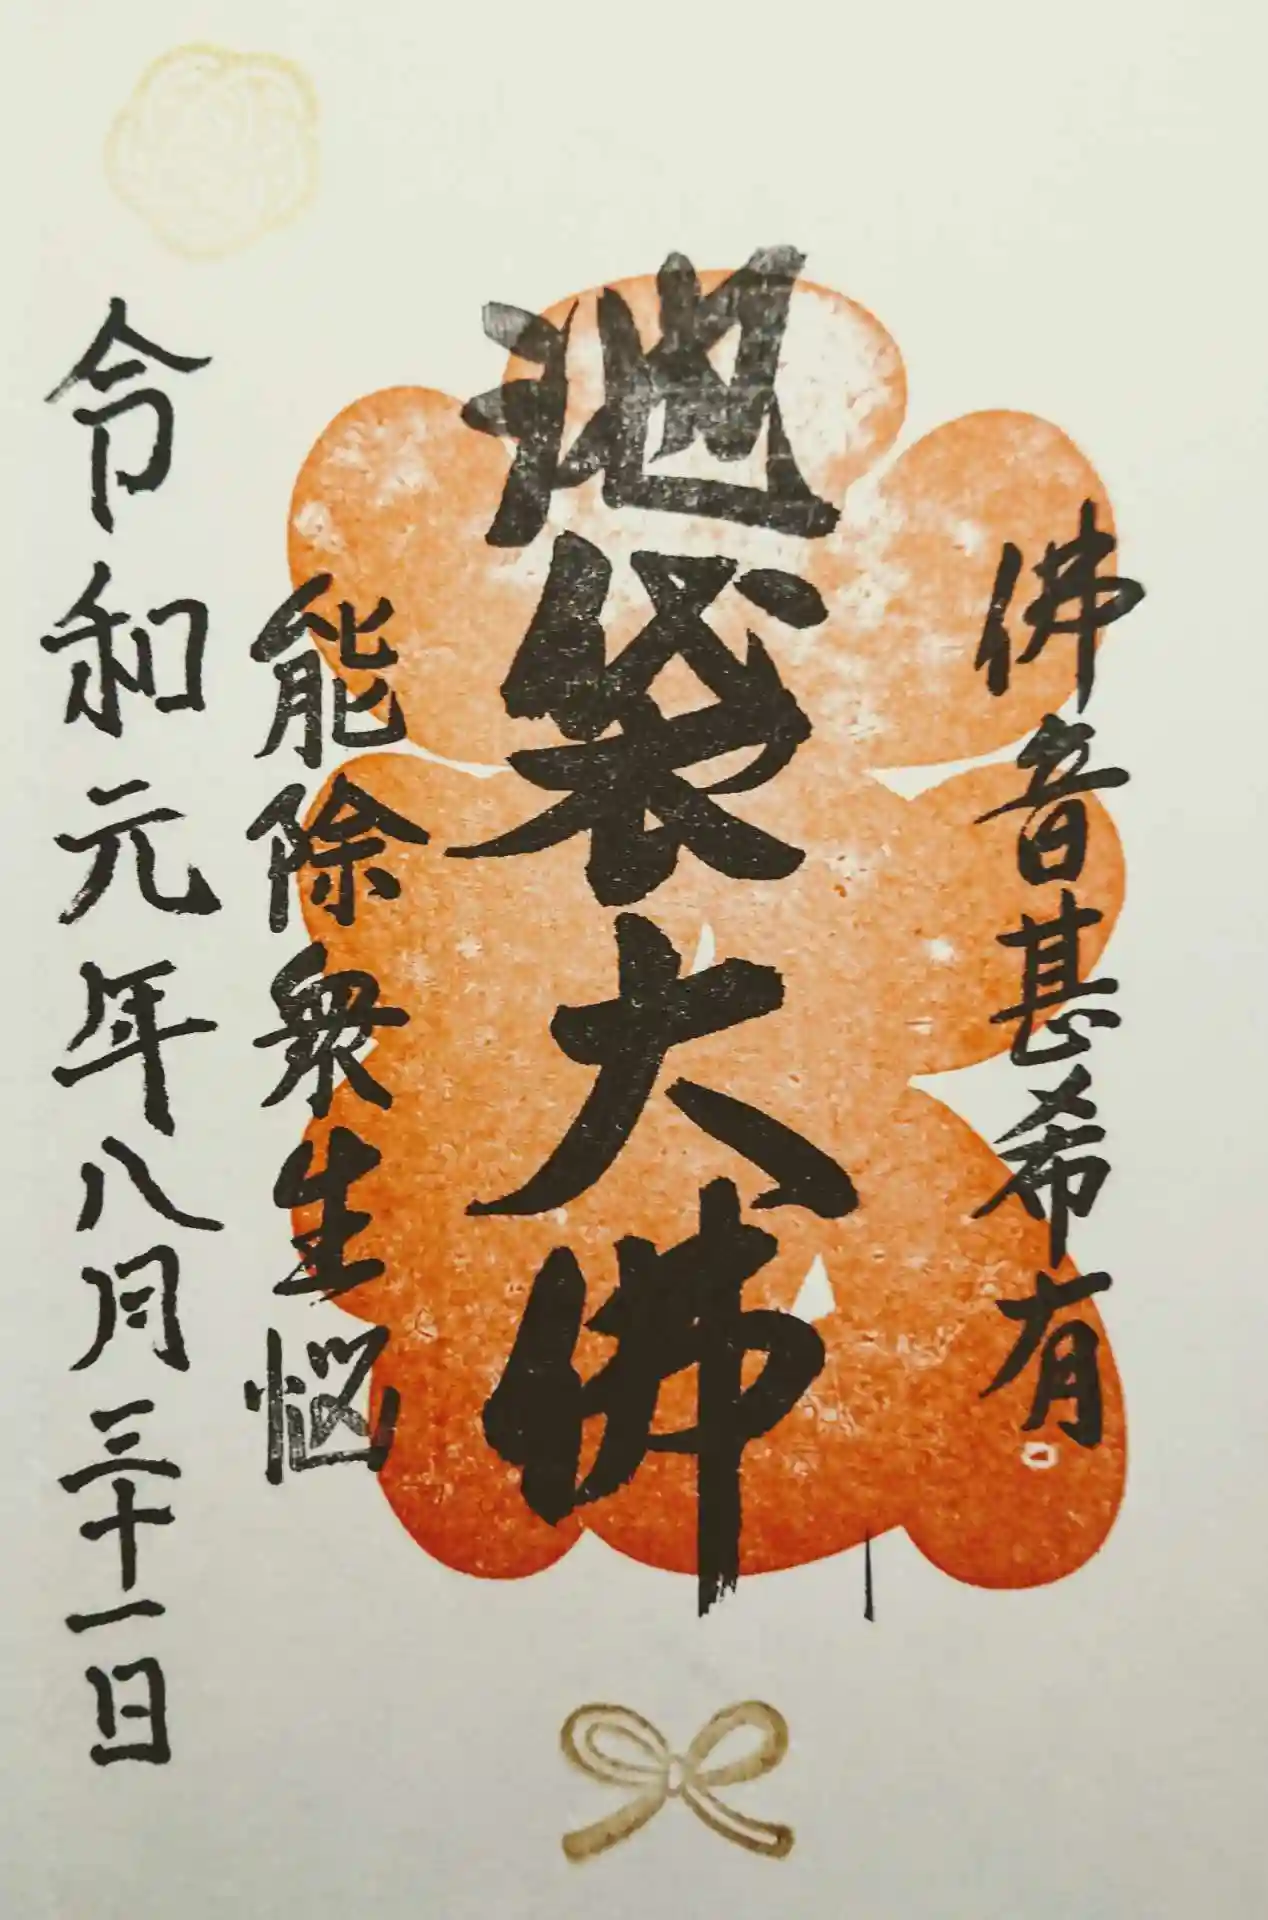 佛音甚希有
池袋大佛
能除衆生悩
令和元年八月三十一日